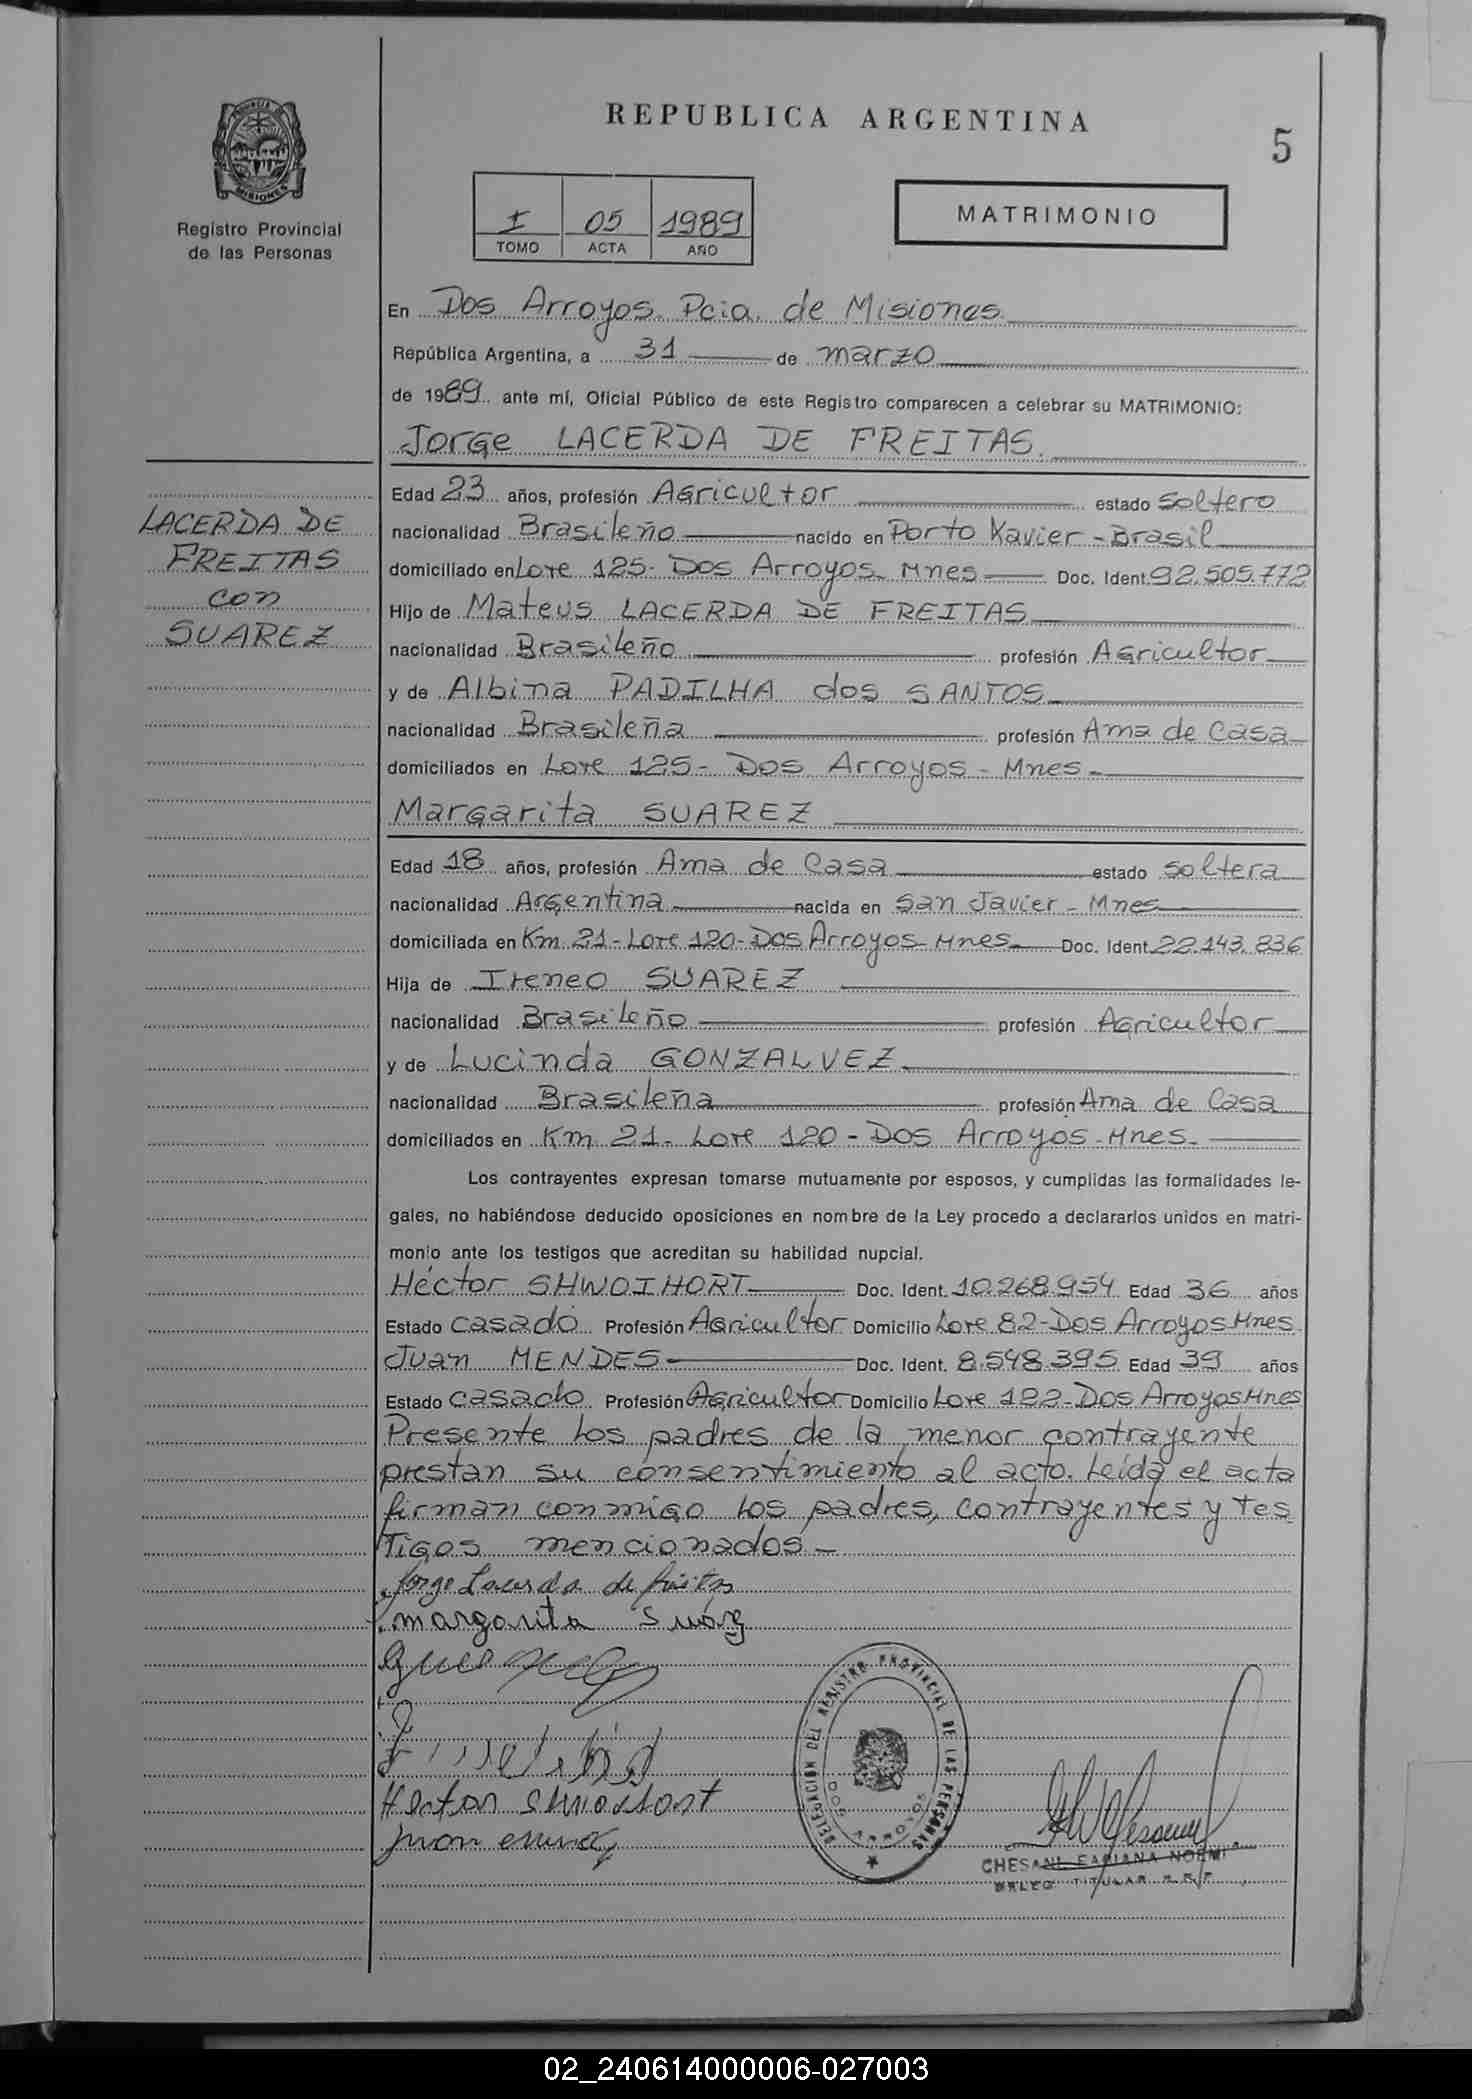 REPUBLICA ARGENTINA
5
PROVINCIA DE
MISIONES
Registro Provincial
de las Personas
I 05 1989
TOMO ACTA AÑO
MATRIMONIO
En Dos Arroyos. Pcia. de Misiones
República Argentina, a 31 de marzo
de 1989 ante mí, Oficial Público de este Registro comparecen a celebrar su MATRIMONIO:
Jorge LACERDA DE FREITAS.
LACERDA DE
FREITAS
con
SUAREZ
Edad 23 años, profesión Agricultor estado soltero
nacionalidad Brasileño nacido en Porto Xavier - Brasil
domiciliado en Lote 125- Dos Arroyos- Mnes Doc. Ident. 92.505.772
Hijo de Mateus LACERDA DE FREITAS
nacionalidad Brasileño profesión Agricultor
y de Albina PADILHA dos SANTOS
nacionalidad Brasileña profesión Ama de Casa
domiciliados en Lote 125- Dos Arroyos - Mnes-
Margarita SUAREZ
Edad 18 años, profesión Ama de Casa estado soltera
nacionalidad Argentina nacida en San Javier - Mnes
domiciliada en Km 21- Lote 120- Dos Arroyos- Mnes Doc. Ident. 22.143.836
Hija de Ireneo SUAREZ
nacionalidad Brasileño profesión Agricultor
y de Lucinda GONZALVEZ
nacionalidad Brasileña profesión Ama de Casa
domiciliados en Km 21- Lote 120 - Dos Arroyos - Mnes.
Los contrayentes expresan tomarse mutuamente por esposos, y cumplidas las formalidades le-
gales, no habiéndose deducido oposiciones en nombre de la Ley procedo a declararlos unidos en matri-
monio ante los testigos que acreditan su habilidad nupcial.
Héctor SHWOIHORT Doc. Ident. 10.268.954 Edad 36 años
Estado casado Profesión Agricultor Domicilio Lote 82-Dos Arroyos Mnes
Juan MENDES Doc. Ident. 8.548.395 Edad 39 años
Estado casado Profesión Agricultor Domicilio Lote 122-Dos Arroyos Mnes
Presente los padres de la menor contrayente
prestan su consentimiento al acto. Leída el acta
firman conmigo los padres, contrayentes y tes
tigos mencionados -
Jorge Lacerda de freitas
margarita Suárez
DELEGACION DEL REGISTRO PROVINCIAL DE LAS PERSONAS
DOS ARROYOS
Juan
CHESANI FABIANA NOEMI
DELEG TITULAR R.P.P.
02_240614000006-027003